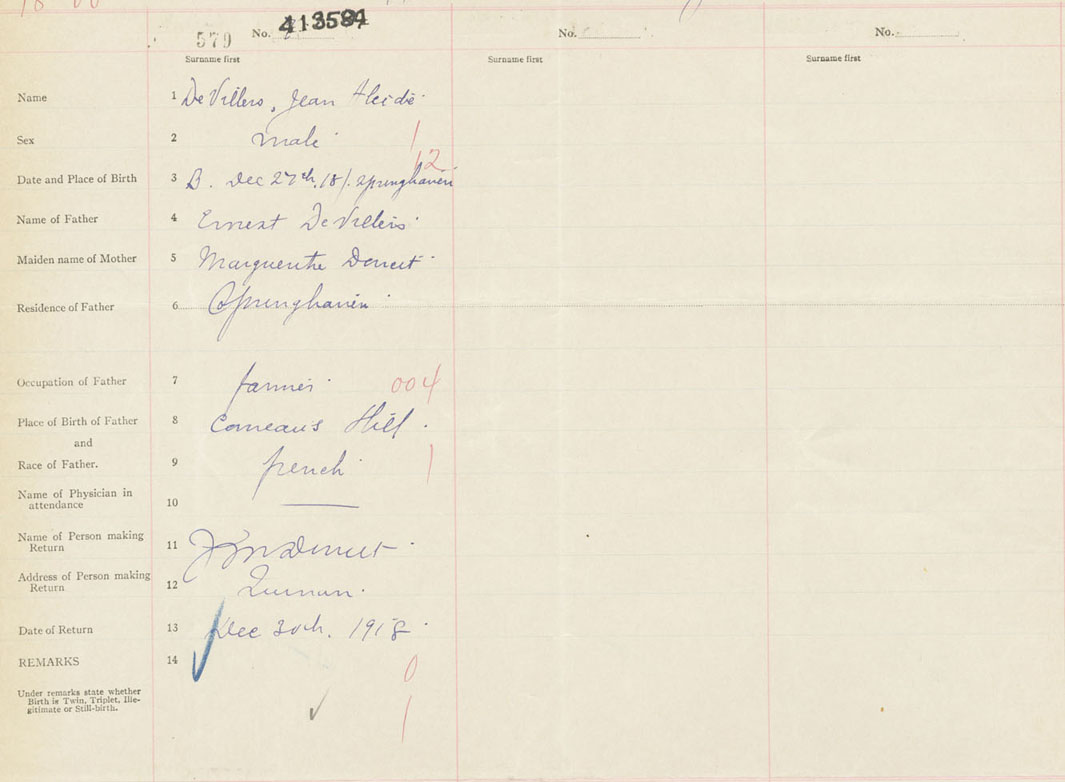 18 00
579 No. 413584
No.
No.
Surname first
Surname first
Surname first
Name 1 DeVillers, Jean Alcidé
Sex 2 male 1
12
Date and Place of Birth 3 B. Dec 27th. 18/. Springhaven
Name of Father 4 Ernest DeVillers
Maiden name of Mother 5 Marguerithe Doucet
Residence of Father 6 Springhaven
Occupation of Father 7 farmer 004
Place of Birth of Father 8 Comeau's Hill.
and
Race of Father. 9 french 1
Name of Physician in
attendance 10
Name of Person making
Return 11 Doucet
Address of Person making
Return 12
Date of Return 13 Dec 30th. 1918
REMARKS 14 0
Under remarks state whether
Birth is Twin, Triplet, Ille-
gitimate or Still-birth. 1